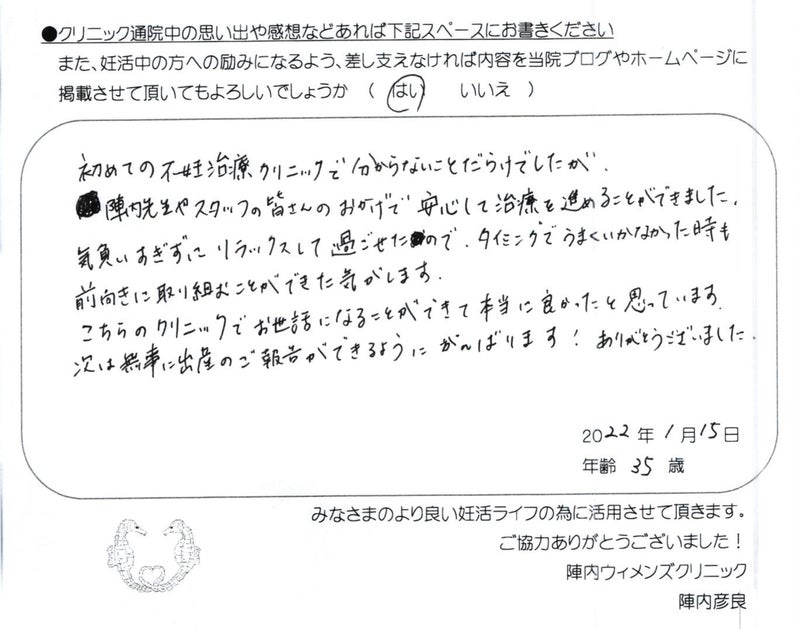 ●クリニック通院中の思い出や感想などあれば下記スペースにお書きください
また、妊活中の方への励みになるよう、差し支えなければ内容を当院ブログやホームページに
掲載させて頂いてもよろしいでしょうか （ はい いいえ ）
初めての不妊治療クリニックで分からないことだらけでしたが、
陣内先生やスタッフの皆さんのおかげで安心して治療を進めることができました。
気負いすぎずに リラックスして過ごせたので、タイミングでうまくいかなかった時も
前向きに取り組むことができた気がします。
こちらのクリニックでお世話になることができて本当に良かったと思っています。
次は無事に出産のご報告ができるようにがんばります！ ありがとうございました。
2022年 1月15日
年齢 35 歳
みなさまのより良い妊活ライフの為に活用させて頂きます。
ご協力ありがとうございました！
陣内ウィメンズクリニック
陣内彦良